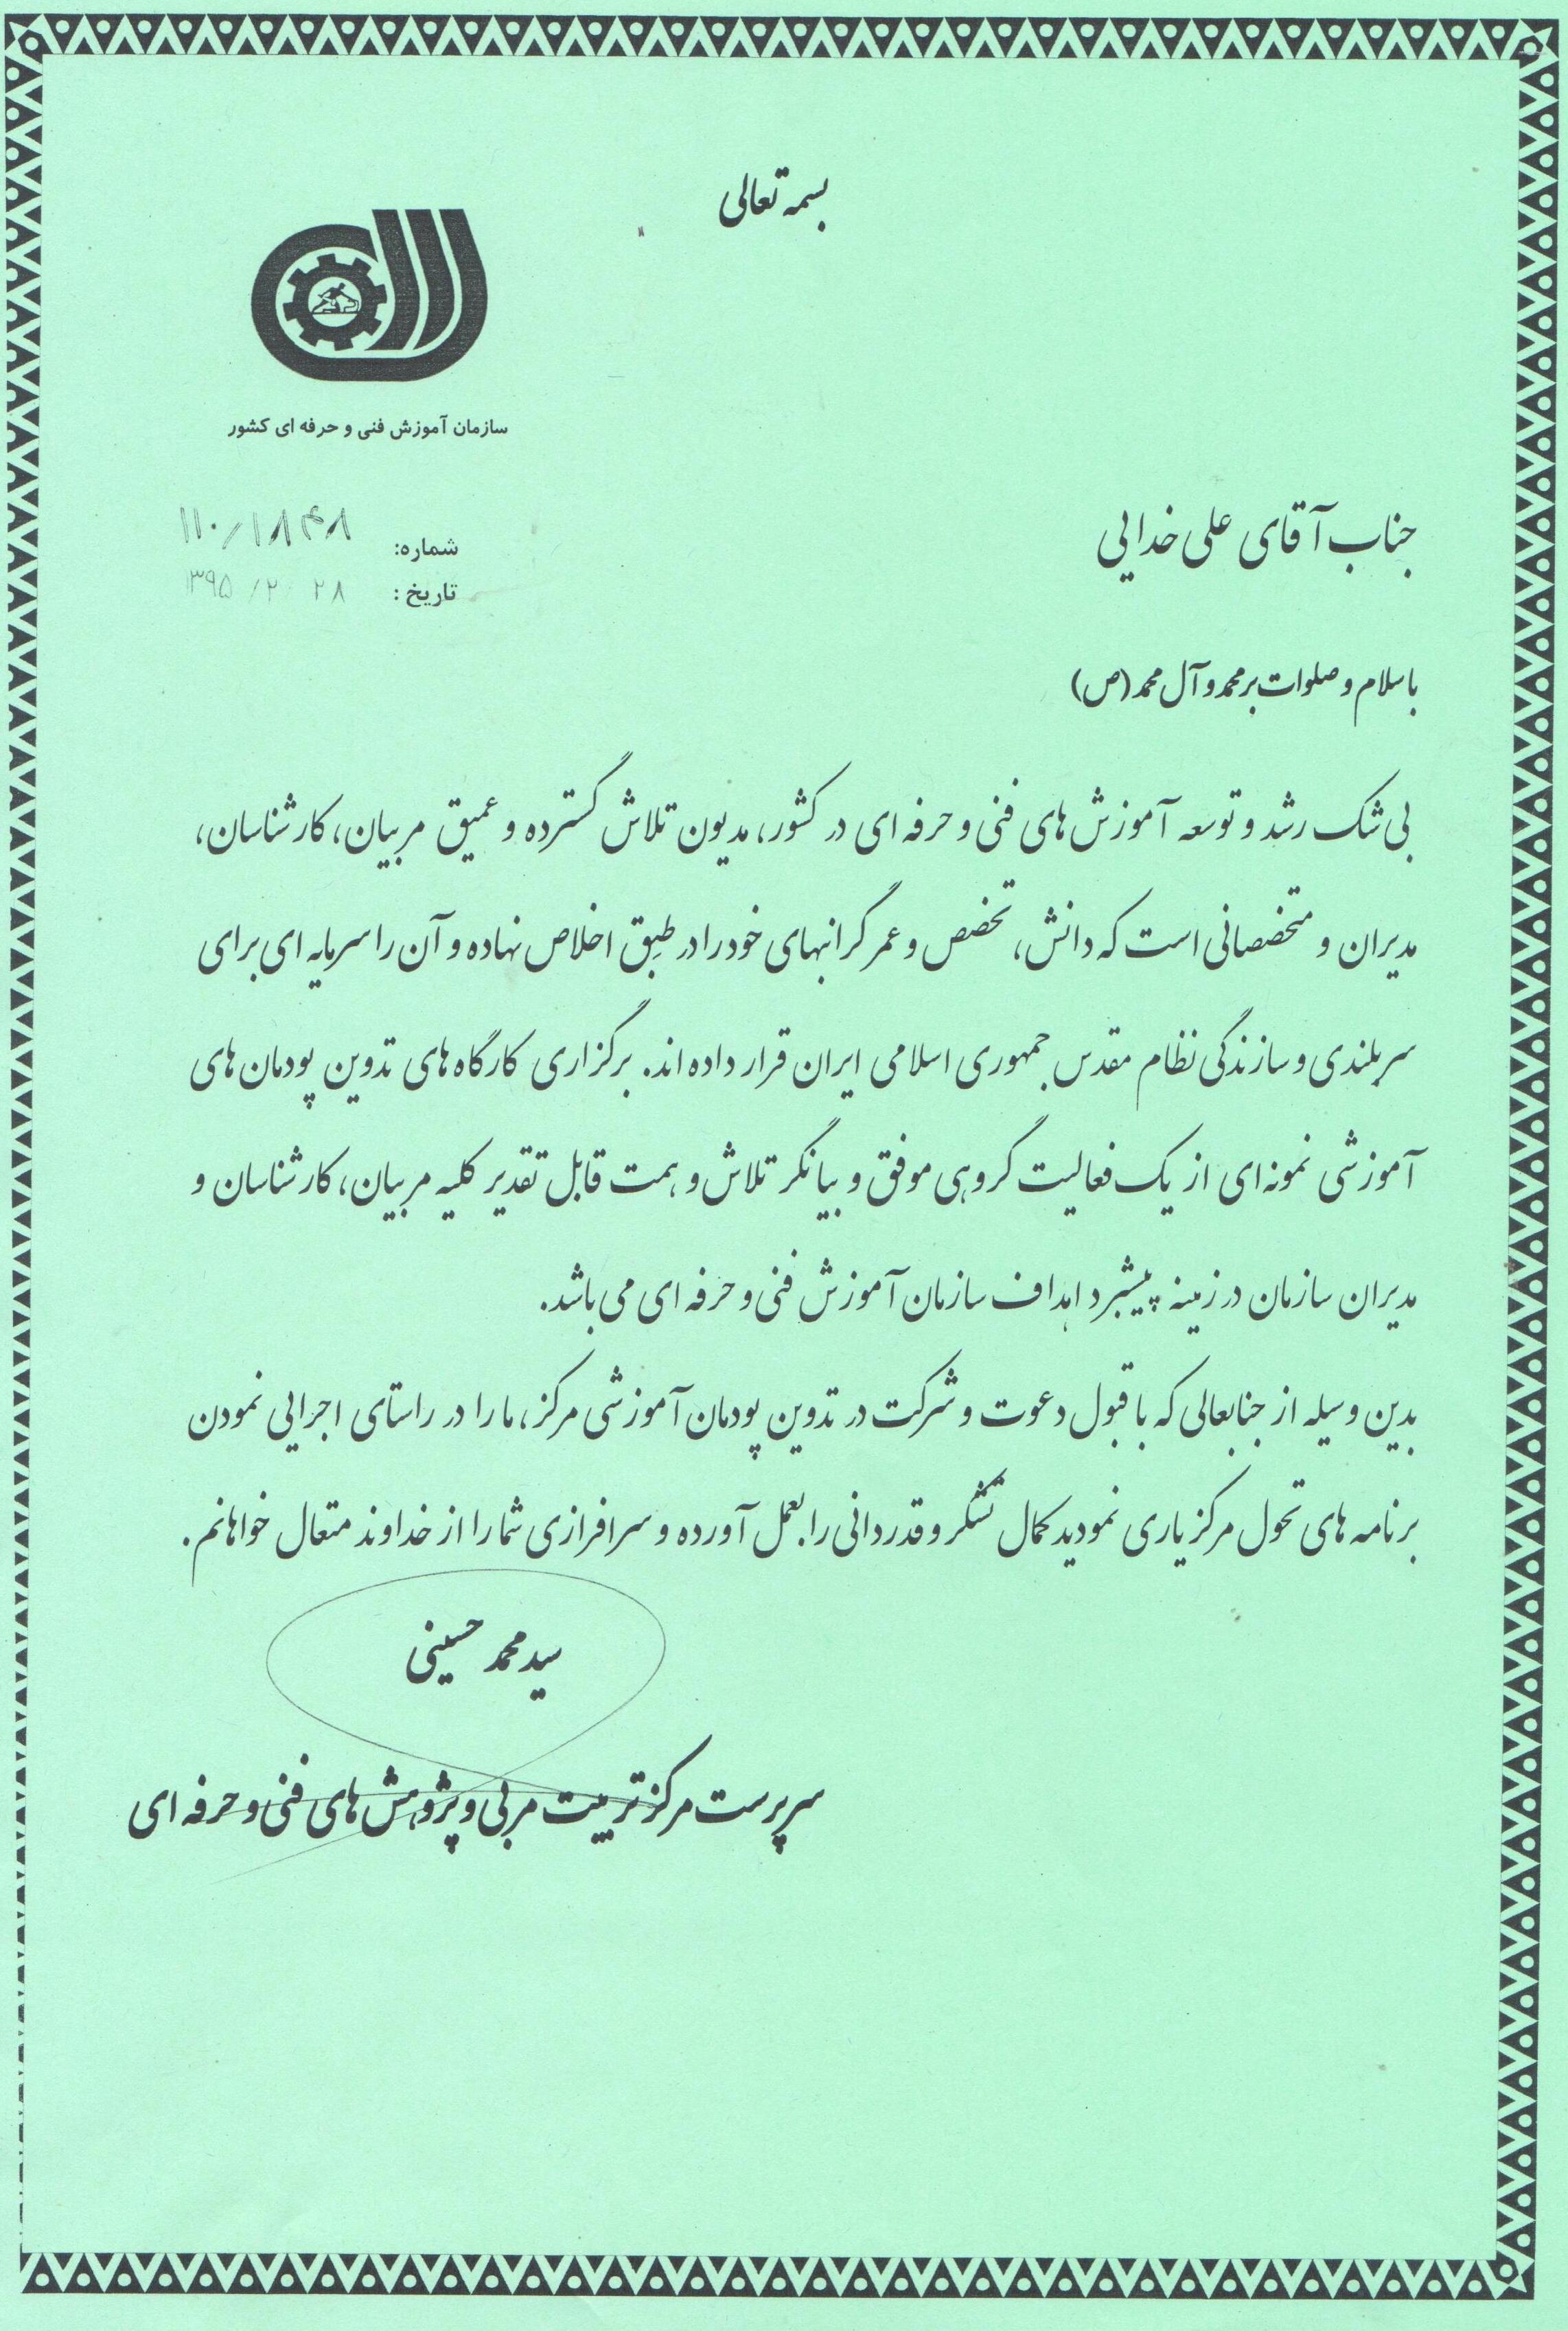 بسمه تعالی
سازمان آموزش فنی و حرفه ای کشور
شماره: ۱۱۰/۱۸۴۸
تاریخ: ۱۳۹۵/۲/۲۸
جناب آقای علی خدایی
با سلام و صلوات بر محمد و آل محمد (ص)
بی شک رشد و توسعه آموزش های فنی و حرفه ای در کشور، مدیون تلاش گسترده و عمیق مربیان، کارشناسان،
مدیران و متخصصانی است که دانش، تخصص و عمر گرانبهای خود را در طبق اخلاص نهاده و آن را سرمایه ای برای
سربلندی و سازندگی نظام مقدس جمهوری اسلامی ایران قرار داده اند. برگزاری کارگاه های تدوین پودمان های
آموزشی نمونه ای از یک فعالیت گروهی موفق و بیانگر تلاش و همت قابل تقدیر کلیه مربیان، کارشناسان و
مدیران سازمان در زمینه پیشبرد اهداف سازمان آموزش فنی و حرفه ای می باشد.
بدین وسیله از جنابعالی که با قبول دعوت و شرکت در تدوین پودمان آموزشی مرکز، ما را در راستای اجرایی نمودن
برنامه های تحول مرکز یاری نمودید کمال تشکر و قدردانی را بعمل آورده و سرافرازی شما را از خداوند متعال خواهانم.
سید محمد حسینی
سرپرست مرکز تربیت مربی و پژوهش های فنی و حرفه ای